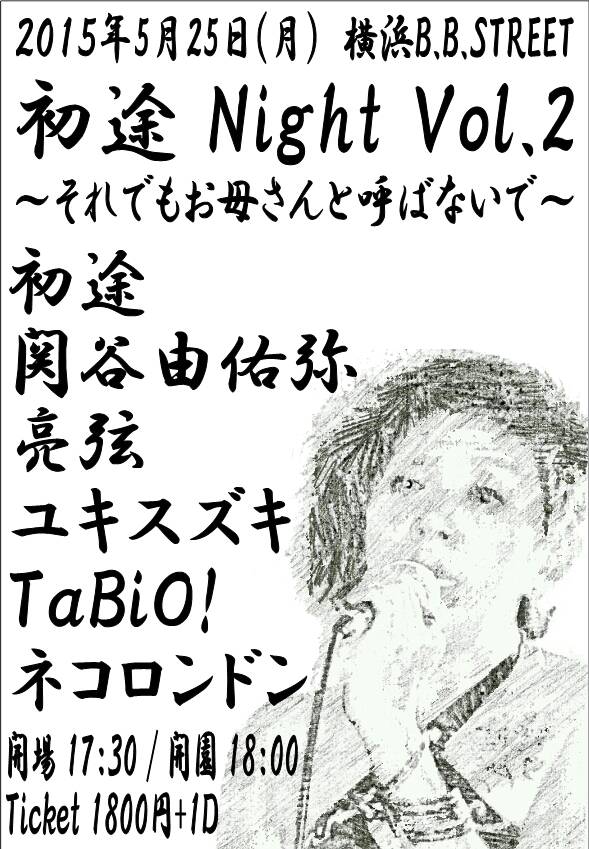 2015年5月25日(月) 横浜B.B.STREET
初途 Night Vol.2
～それでもお母さんと呼ばないで～
初途
関谷由佑弥
亮弦
ユキスズキ
TaBiO!
ネコロンドン
開場 17:30 / 開園 18:00
Ticket 1800円+1D